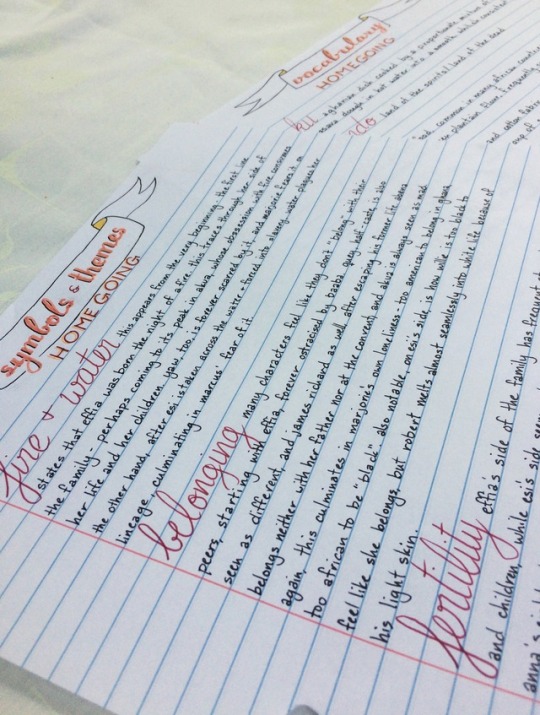 symbols & themes
HOMEGOING
fire + water this appears from the very beginning: the first line
states that effia was born the night of a fire. this traces through her side of
the family - perhaps coming to its peak in akua, whose obsession with fire consumes
her life and her children. yaw, too, is forever scarred by it, and marjorie fears it. on
the other hand, after esi is taken across the water - forced into slavery - water plagues her
lineage, culminating in marcus' fear of it.
belonging many characters feel like they don't "belong" with their
peers, starting with effia, forever ostracised by baaba. quey, half-caste, is also
seen as different, and james richard as well after escaping his former life. abena
belongs neither with her father nor at the convent, and akua is always seen as mad.
again, this culminates in marjorie's own loneliness - too american to belong in ghana,
too african to be "black". also notable, on esi's side is how willie is too black to
feel like she belongs, but robert melts almost seamlessly into white life because of
his light skin.
fertility effia's side of the family has frequent
and children, while esi's side seem
anna's
vocabulary
HOMEGOING
a ghanaian dish cooked by a proportionate mixture of
cassava dough in hot water into a smooth, whitish consistent
land of the spirits/land of the dead
food, common in many african countries
or plantain flour/
and cotton fabric